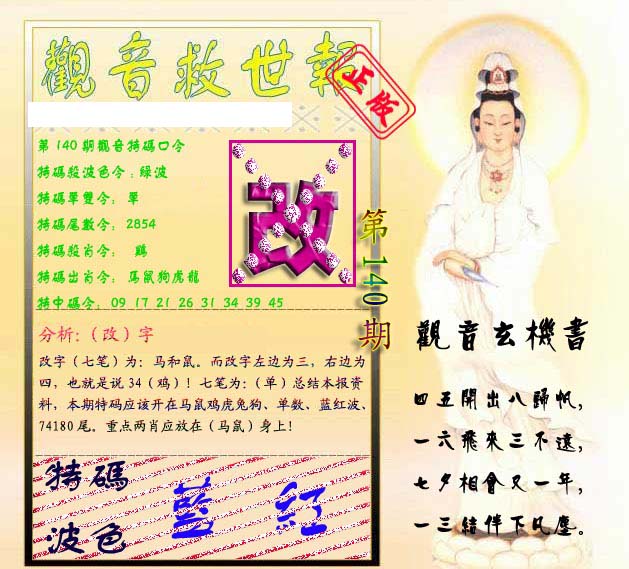 觀音救世報
正版
第140期觀音特碼口令
特碼殺波色令:綠波
特碼單雙令: 單
特碼尾數令: 2854
特碼殺肖令: 鷄
特碼出肖令: 馬鼠狗虎龍
特中碼令: 09 17 21 26 31 34 39 45
改
第140期
分析:(改)字
改字（七笔）为：马和鼠。而改字左边为三，右边为
四，也就是说 34（鸡）！七笔为：（单）总结本报资
料，本期特码应该开在马鼠鸡虎兔狗、单数、蓝红波、
74180 尾。重点两肖应放在（马鼠）身上！
特碼
波色
藍 紅
觀音玄機書
四五開出八歸帆，
一六飛來三不遠，
七夕相會又一年，
一三結伴下凡塵。